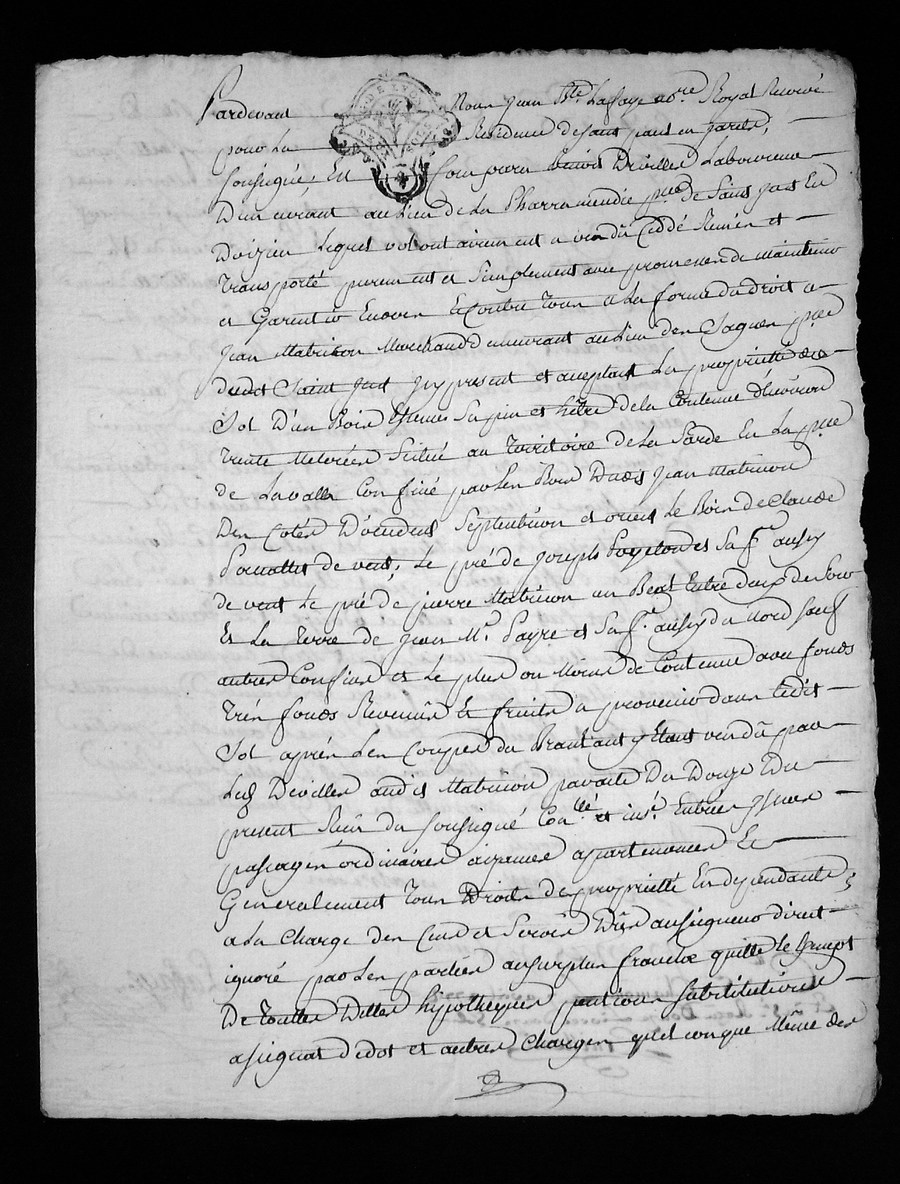 Pardevant Nous Jean Bte Laffaye nore Royal Reservé
pour La Residence de sant paul en jarets,
soussigné, Et Deviller Laboureur
Demeurant au Lieu de La Pharramendie psse de Saint just En
Doizieu Lequel volontairement a vendu Ceddé Remis et
transporté purement et simplement avec promesse de maintenir
et Garentir Envers Et Contre Tous a La forme du droit a
jean Matricon Marchand demeurant au Lieu des psse
dudt Saint just jcy present et acceptant La proprietté du
Sol D'un Bois Essence Sapin et hêtre de la Contenue d'Environ
trente Meterées Scitué au Territoire de La Sarde En La psse
de Lavalla Confiné par Les Bois Dudit Jean Matricon
Des Cotés D'occident Septentrion et orient Le Bois de Claude
de vent, Le pré de joseph et Sa f. aussy
de vent Le pré de pierre Matricon un Beal Entre deux de Soir
Et La Terre de jean M. Payre et Sa f. aussy du Nord sauf
autres Confins et Le plus ou Moins de Contenue avec fonds
Trés fonds Revenus Et fruits a provenir dans Ledit
Sol aprés Les Coupes du y Etant vendu par
Led Deviller audit Matricon par acte Du Douze Du
present Reçu du soussigné Conllé et insé Entrées jssues
passages ordinaires aizances apartenances Et
Generalement Tous Droits de proprietté En dependants
a La Charge des Cens et Servis Dus au Seigneur direct
ignoré par Les parties au surplus franche quitte Le jusqot
De Touttes Dettes hipotheques pentions Substitutions
assignat de dot et autres Charges quelconque Même des